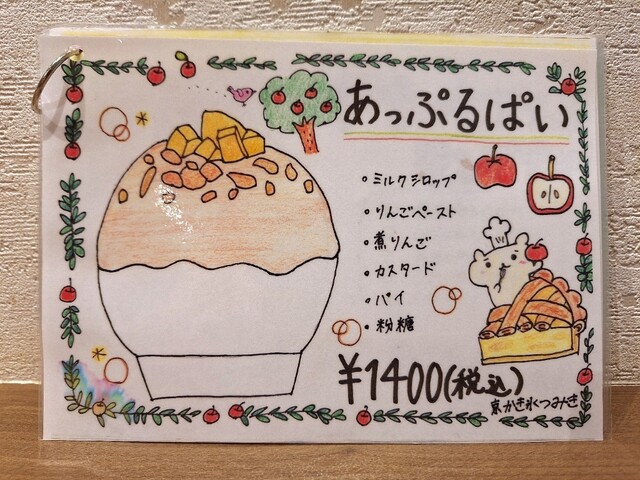 あっぷるぱい
・ミルクシロップ
・りんごペースト
・煮りんご
・カスタード
・パイ
・粉糖
¥1400(税込)
京かき氷つみき